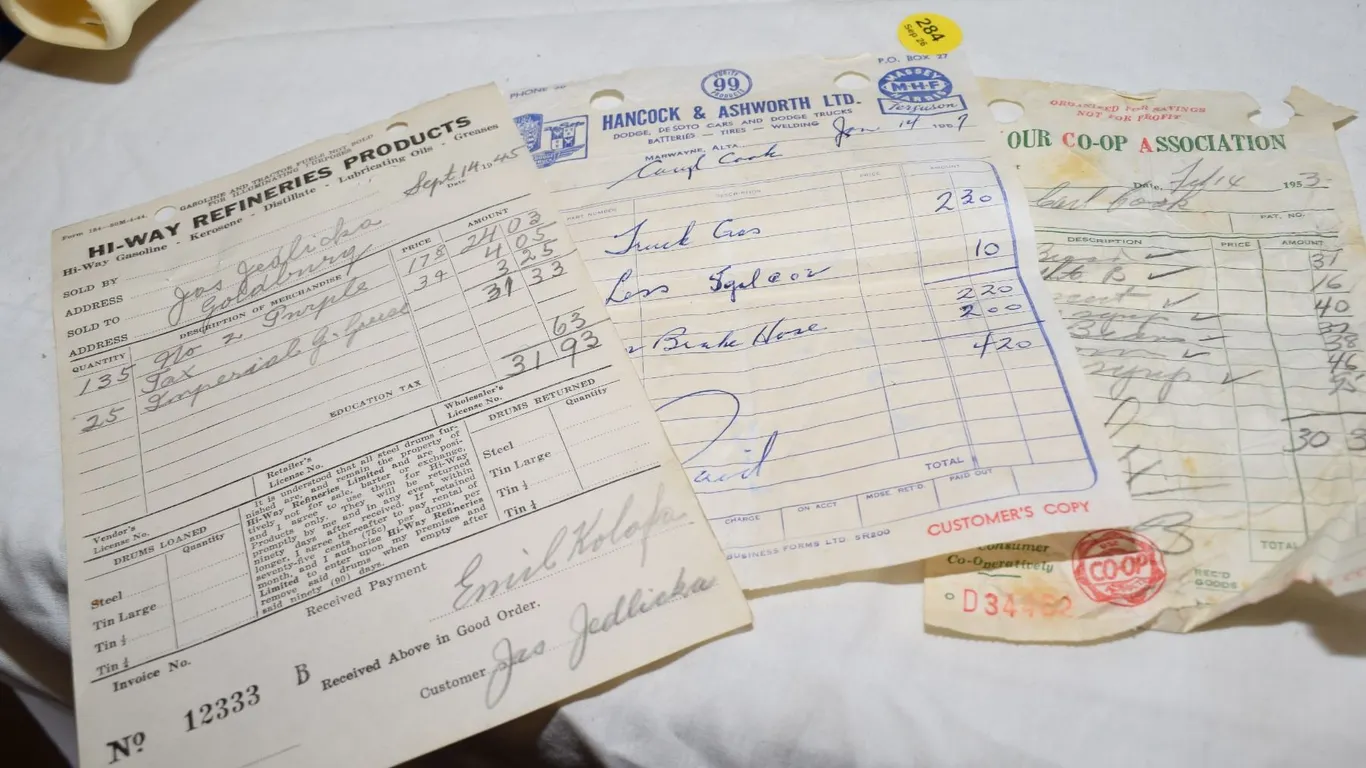 Form 184-50M-4-44
GASOLINE AND TRACTOR FUELS NOT SOLD
FOR ILLUMINATING PURPOSES
HI-WAY REFINERIES PRODUCTS
Hi-Way Gasoline - Kerosene - Distillate - Lubricating Oils - Greases
Sept 14 1945
Date
SOLD BY
ADDRESS
SOLD TO Jas Jedlicka
ADDRESS Goldburg
QUANTITY DESCRIPTION OF MERCHANDISE PRICE AMOUNT
135 No 2 Purple 178 2403
Tax 405
25 Imperial G. Grease 325
3133
EDUCATION TAX 63
3193
Vendor's License No.
Retailer's License No.
Wholesaler's License No.
DRUMS LOANED Quantity
Steel
Tin Large
Tin ½
Tin ¼
It is understood that all steel drums fur-
nished are, and remain the property of
Hi-Way Refineries Limited and are posi-
tively not for sale, barter or exchange,
and I agree to use them for Hi-Way
Products only. They will be returned
promptly by me and in any event within
ninety days after received. If retained
longer, I agree to pay rental of
seventy-five cents (75c) per drum, per
month, and I authorize Hi-Way Refineries
Limited to enter upon my premises and
remove said drums when empty after
said ninety (90) days.
DRUMS RETURNED Quantity
Steel
Tin Large
Tin ½
Tin ¼
Received Payment Emil Kolofa
Received Above in Good Order.
Customer Jas Jedlicka
Invoice No.
No 12333 B
284
Sep 26
PHONE
P.O. BOX 27
99
MASSEY
M-H-F
HARRIS
Ferguson
HANCOCK & ASHWORTH LTD.
DODGE, DESOTO CARS AND DODGE TRUCKS
BATTERIES — TIRES — WELDING
MARWAYNE, ALTA.
Jan 14 1957
Cook
PART NUMBER DESCRIPTION PRICE AMOUNT
Truck 230
Less 10
220
Brake Hose 200
420
Paid
TOTAL
CHARGE ON ACCT MDSE RET'D. PAID OUT
BUSINESS FORMS LTD. SR200
CUSTOMER'S COPY
ORGANISED FOR SAVINGS
NOT FOR PROFIT
OUR CO-OP ASSOCIATION
Date, Feb 14 1953
Cook
PAT. NO.
DESCRIPTION PRICE AMOUNT
31
16
40
38
46
syrup
30
TOTAL
Consumer
Co-Operatively
CO-OP
REC'D
GOODS